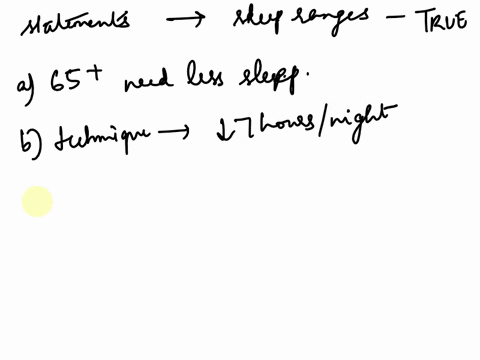 statements → sleep ranges - TRUE
a) 65+ need less sleep.
b) technique → ↓ 7 hours/night